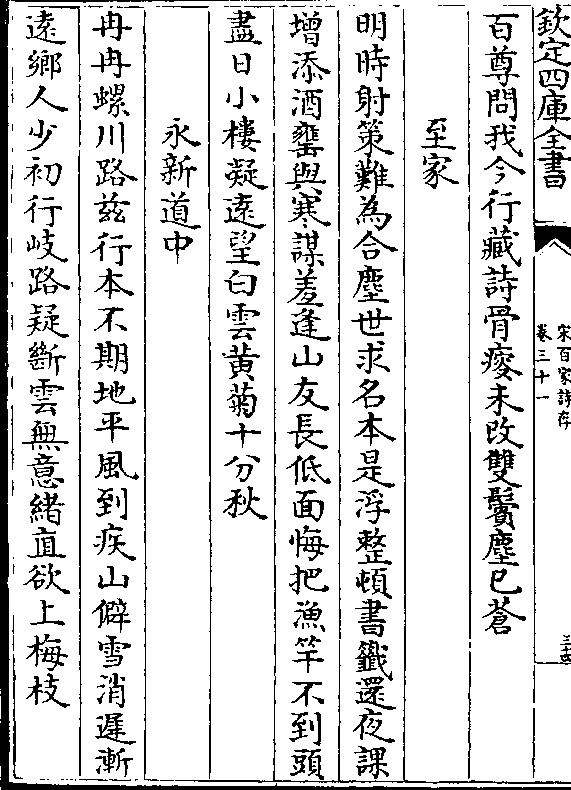 欽定四庫全書
宋百家詩存
卷三十一
百尊問我今行藏詩骨瘦未改雙鬢塵已蒼
至家
明時射策難為合塵世求名本是浮整頓書籤還夜課
增添酒甕與寒謀羞逢山友長低面悔把漁竿不到頭
盡日小棲凝遠望白雲黃菊十分秋
永新道中
冉冉螺川路兹行本不期地平風到疾山僻雪消遲漸
遠鄉人少初行岐路疑斷雲無意緒直欲上梅枝